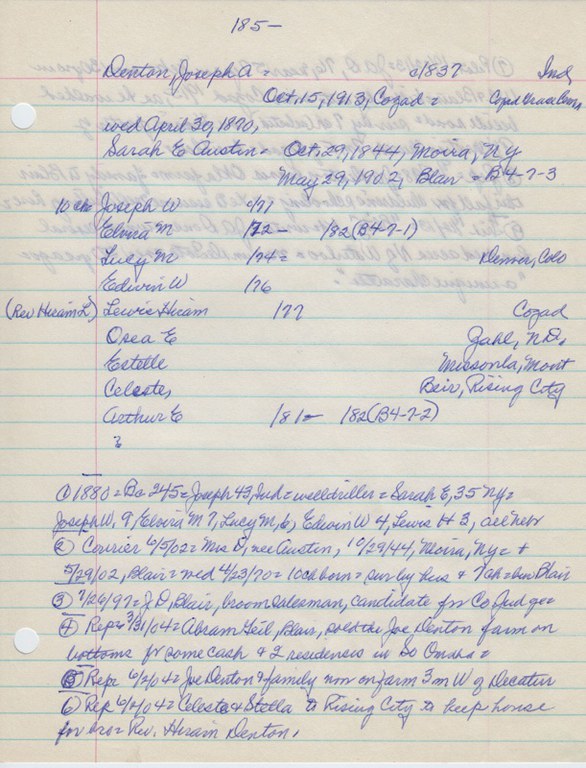 185-
Denton, Joseph A = c/1837 Ind,
Oct, 15, 1913, Cozad =
wed April 30, 1870,
Sarah E Austin = Oct, 29, 1844, Moira, NY
May 29, 1902, Blair = B4-7-3
10 ch Joseph W c/71
Elvira M 172- /82 (B4-7-1)
Lucy M /74 = Denver, Colo
Edwin W /76
(Rev Hiram L) Lewis Hiram 177 Cozad
Orea E Zahl, N.D,
Estelle Missoula, Mont
Celeste, Rising City
Arthur E /81- 182 (B4-7-2)
?
① 1880 = Bc 245 = Joseph 43, Ind = welldriller = Sarah E, 35 NY =
Joseph W, 9, Elvira M 7, Lucy M, 6, Edwin W 4, Lewis H 3, all Nebr
② Courier 6/5/02 = Mrs D, nee Austin, 10/29/44, Moira, NY = +
5/29/02, Blair = wed 4/23/70 = 10 ch born = sur by hus & 7 ch = bur Blair
③ 7/26/97 = J D, Blair, broom salesman, candidate for Co Judge =
④ Rep = 3/31/04 = Abram Geil, Blair, sold the Joe Denton farm on
bottoms for some cash & 2 residences in So Omaha =
⑤ Rep: 6/2/04 = Joe Denton & family now on farm 3 m W of Decatur
⑥ Rep 6/2/04 = Celeste & Stella to Rising City to keep house
for bro = Rev. Hiram Denton,